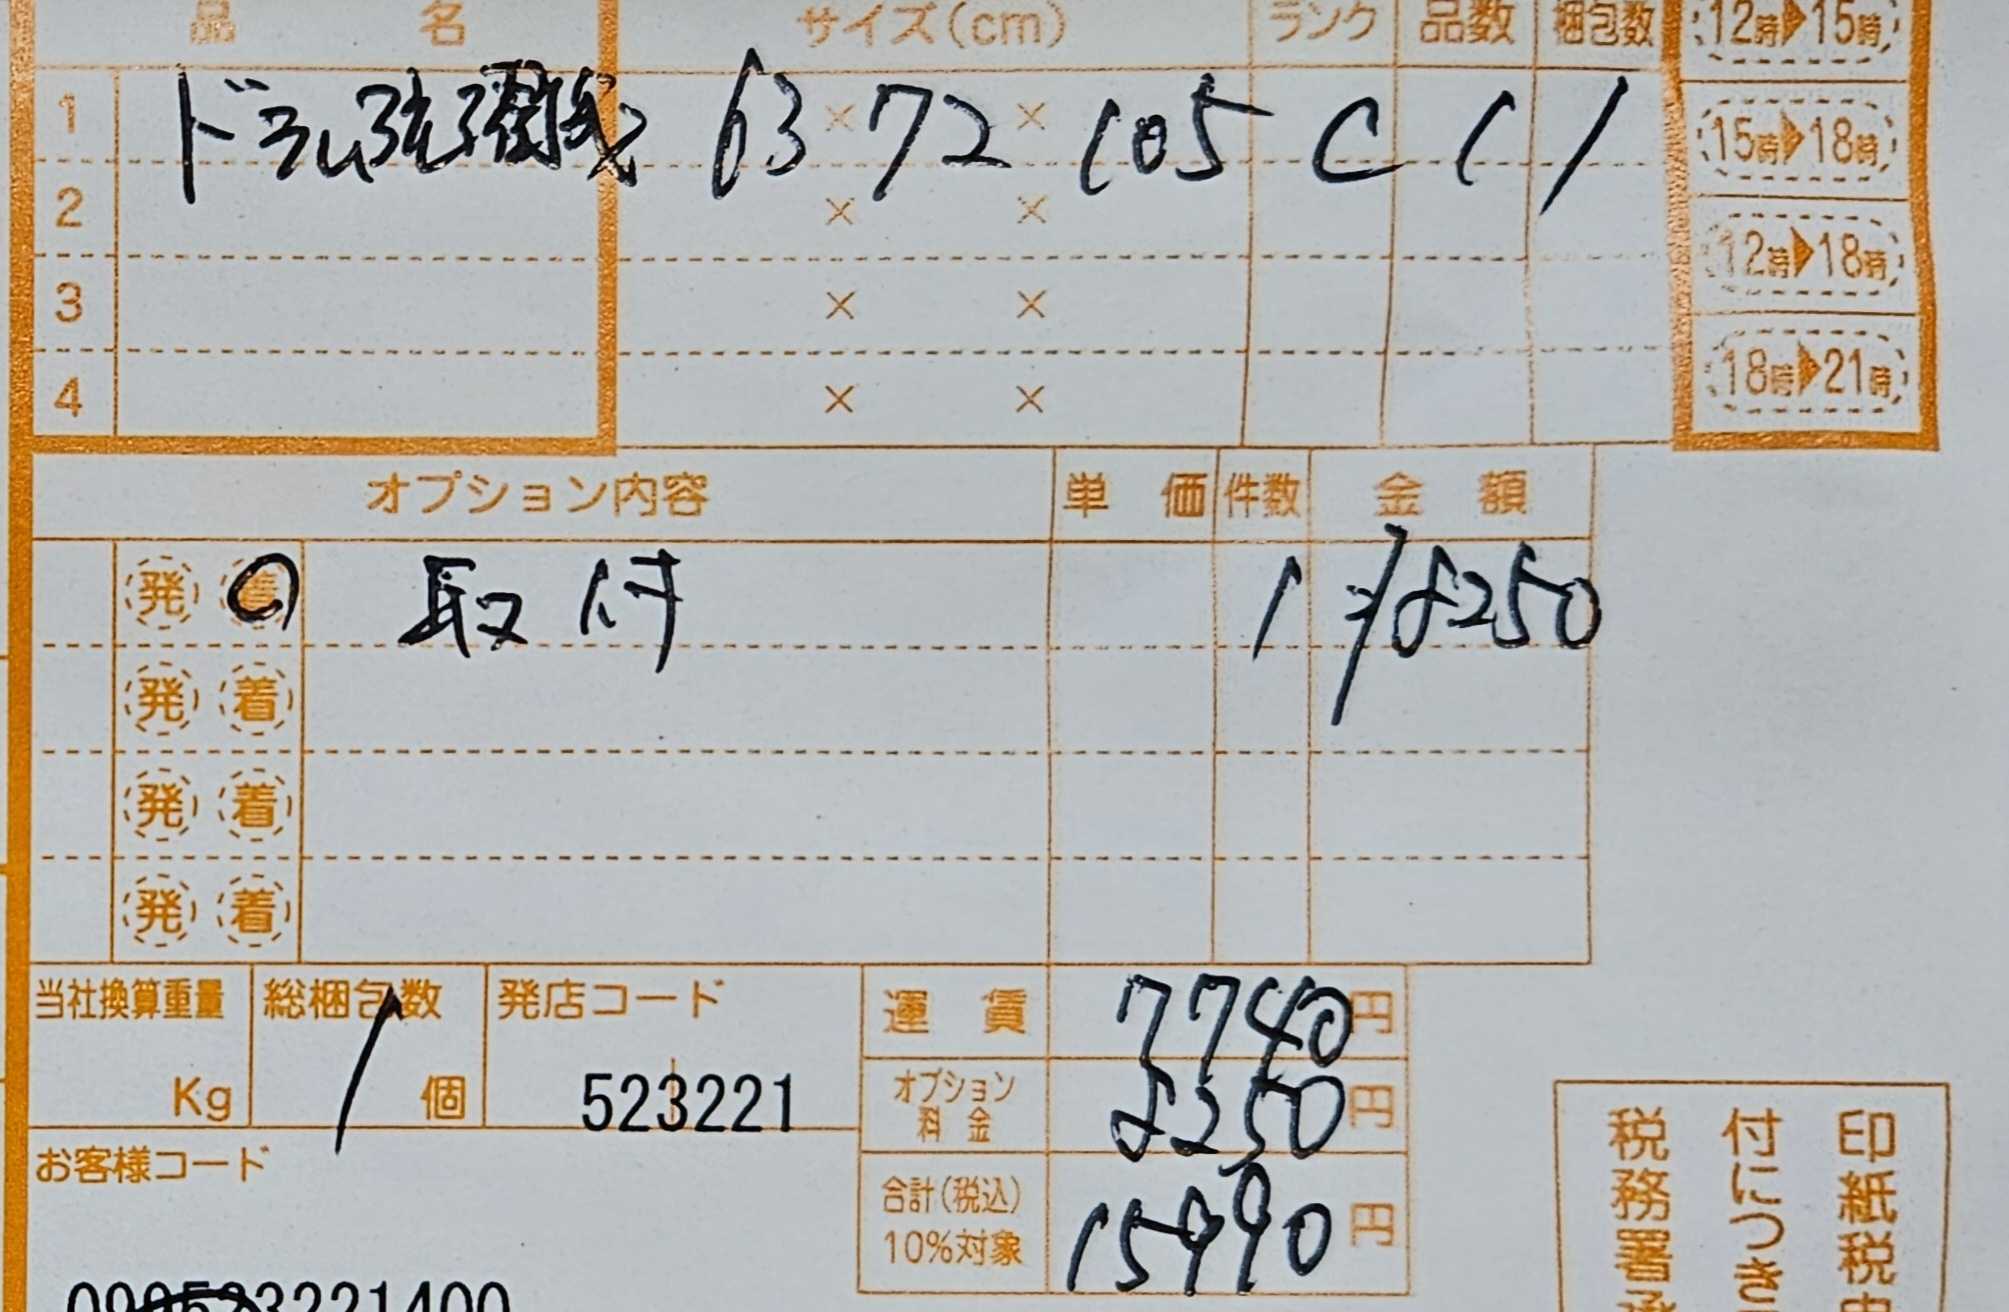 品名 サイズ(cm) ランク 品数 梱包数 12時▶15時
1 ドラム洗濯機 63×72×105 C 1 1 15時▶18時
2 × × 12時▶18時
3 × ×
4 × × 18時▶21時
オプション内容 単価 件数 金額
発 着 取付 1 8250
発 着
発 着
発 着
当社換算重量 Kg
総梱包数 1 個
発店コード 523221
運賃 7740円
オプション料金 8250円
合計(税込) 10%対象 15990円
お客様コード
印紙税申
付につき
税務署承